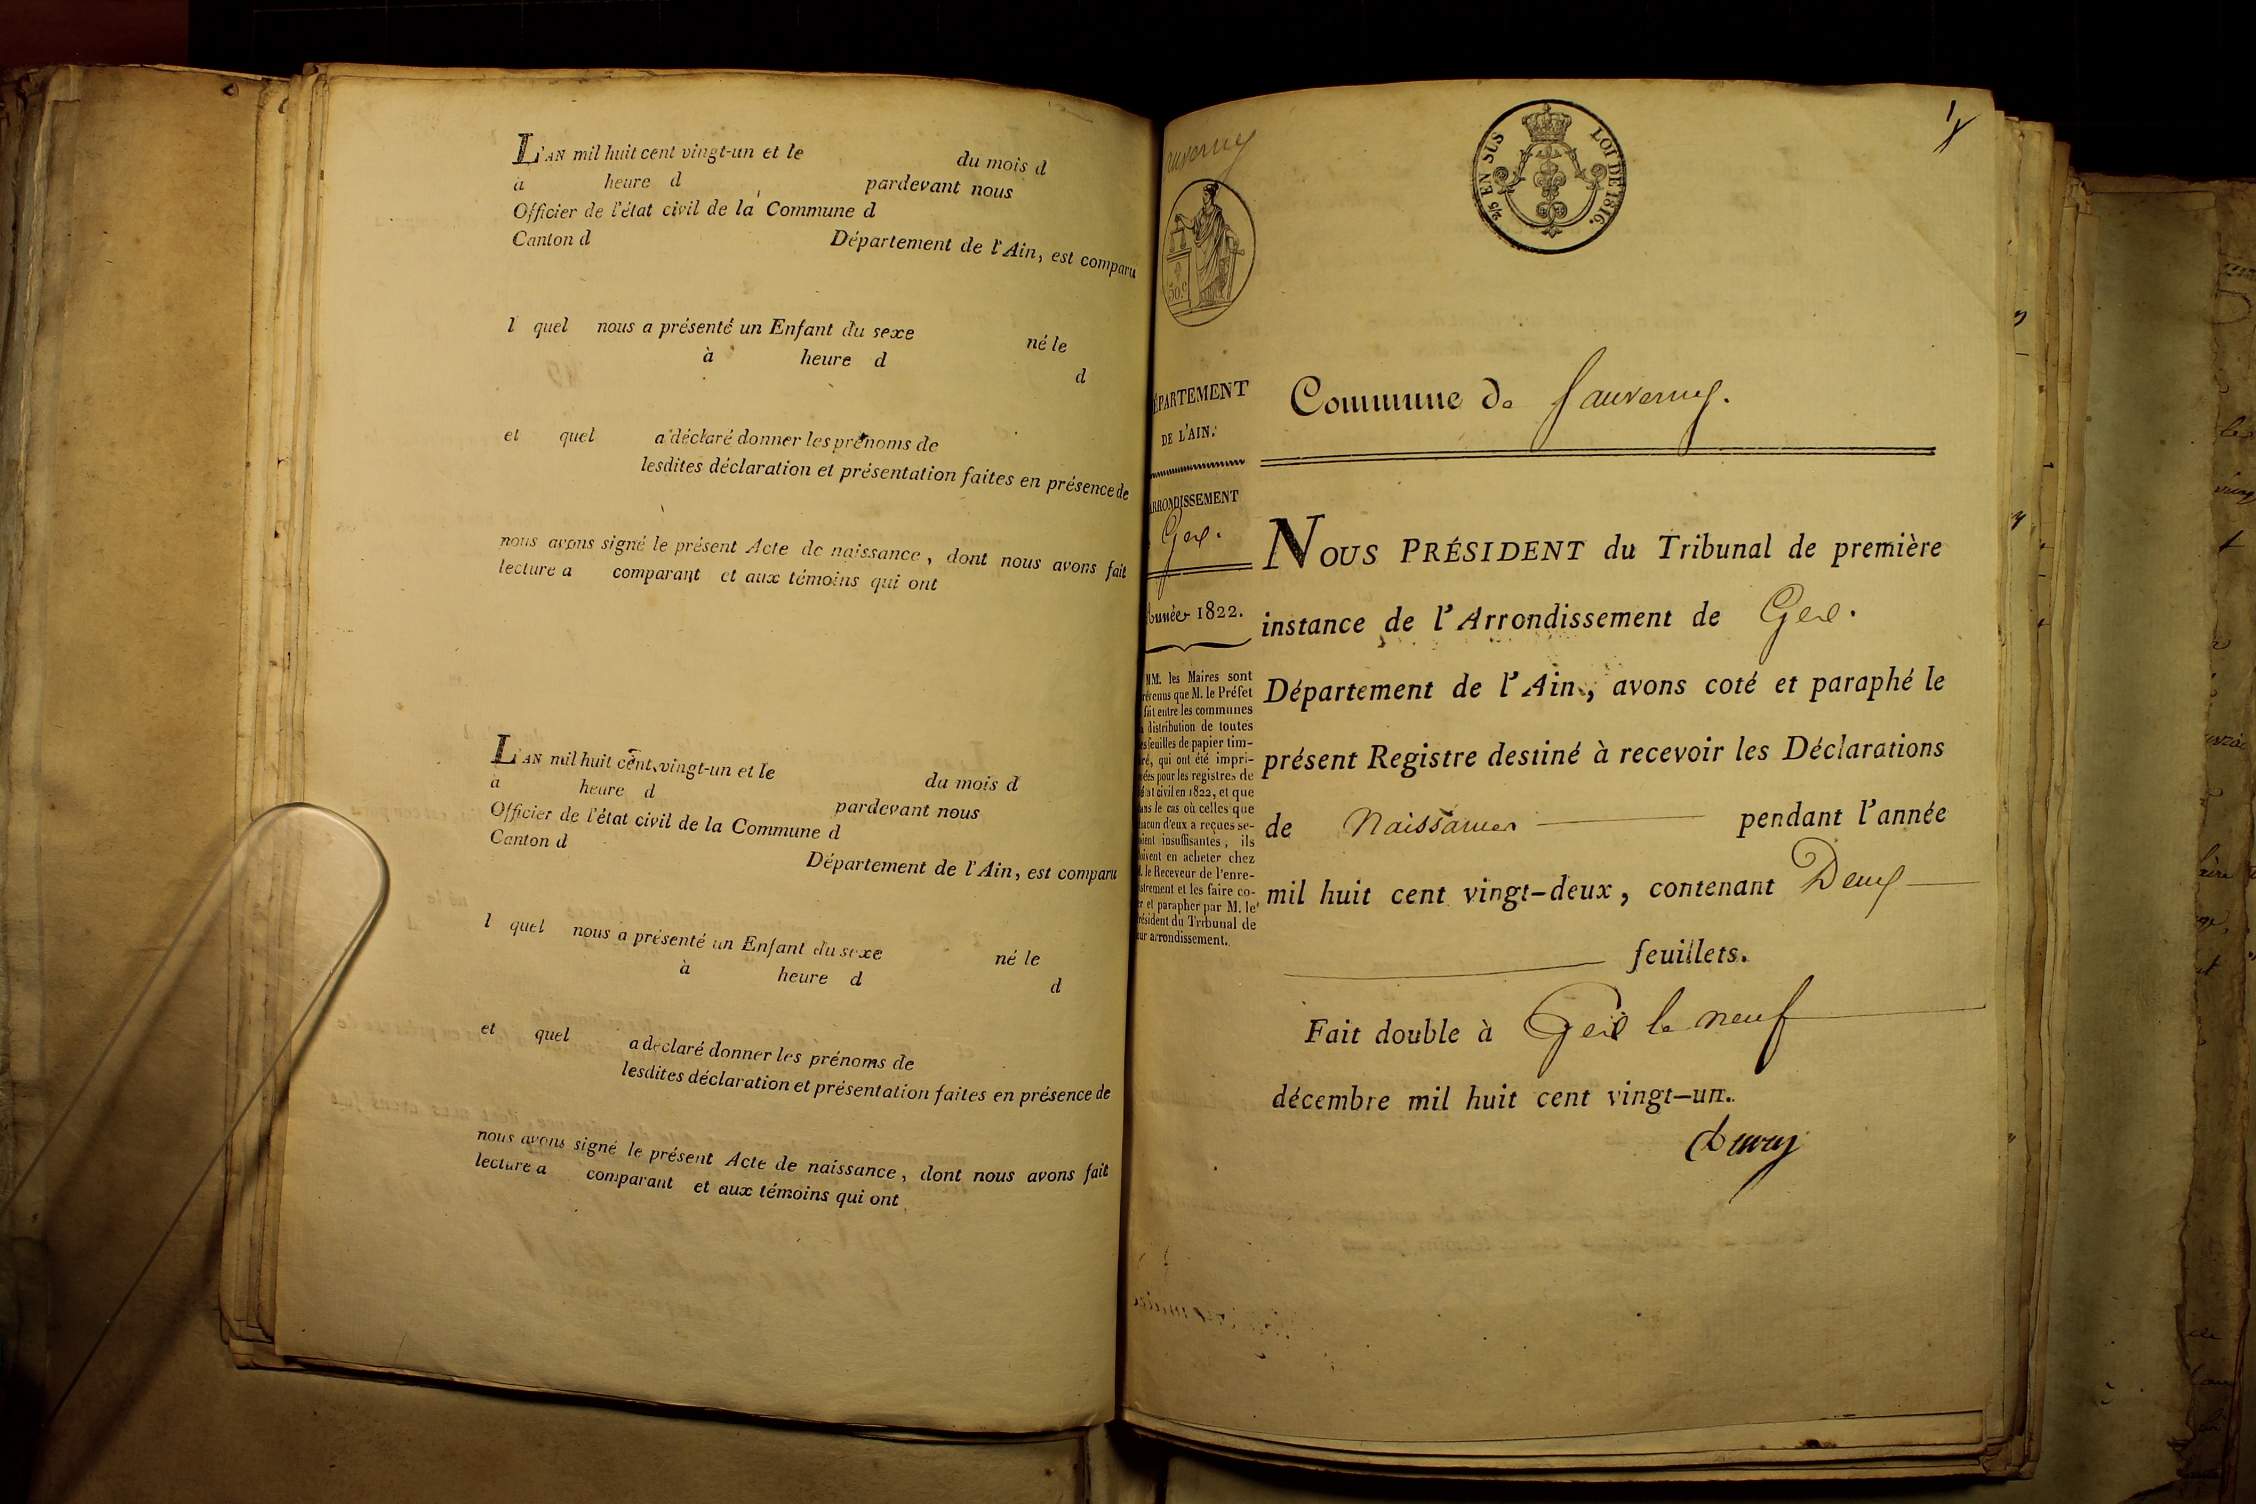 L'AN mil huit cent vingt-un et le du mois d
à heure d pardevant nous
Officier de l'état civil de la Commune d
Canton d Département de l'Ain, est comparu
l quel nous a présenté un Enfant du sexe né le
à heure d d
et quel a déclaré donner les prénoms de
lesdites déclaration et présentation faites en présence de
nous avons signé le présent Acte de naissance, dont nous avons fait
lecture a comparant et aux témoins qui ont
L'AN mil huit cent vingt-un et le du mois d
à heure d pardevant nous
Officier de l'état civil de la Commune d
Canton d Département de l'Ain, est comparu
l quel nous a présenté un Enfant du sexe né le
à heure d d
et quel a déclaré donner les prénoms de
lesdites déclaration et présentation faites en présence de
nous avons signé le présent Acte de naissance, dont nous avons fait
lecture a comparant et aux témoins qui ont
1
2/5 EN SUS LOI DE 1816.
50.c
ÉPARTEMENT
DE L'AIN.
ARRONDISSEMENT
Gex.
Année 1822.
MM. les Maires sont
évenus que M. le Préfet
fait entre les communes
a distribution de toutes
es feuilles de papier tim-
ré, qui ont été impri-
ées pour les registres de
état civil en 1822, et que
ans le cas où celles que
hacun d'eux a reçues se-
oient insuffisantes, ils
oivent en acheter chez
. le Receveur de l'enre-
istrement et les faire co-
er et parapher par M. le
résident du Tribunal de
eur arrondissement.
Commune de Sauverny.
NOUS PRÉSIDENT du Tribunal de première
instance de l'Arrondissement de Gex.
Département de l'Ain, avons coté et paraphé le
présent Registre destiné à recevoir les Déclarations
de Naissances pendant l'année
mil huit cent vingt-deux, contenant Deux
feuillets.
Fait double à Gex le neuf
décembre mil huit cent vingt-un.